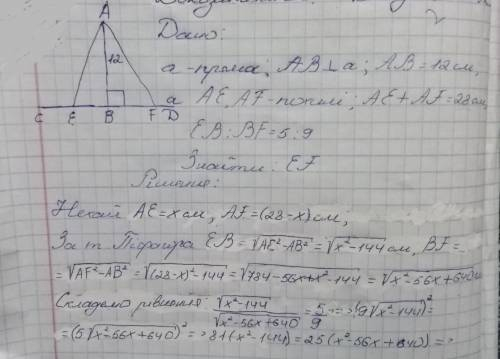 Дано:
A
12
а-пряма; AB⊥a; AB=12см,
C E B F D
a
AE, AF-похилі; AE+AF=28см,
EB:BF=5:9
Знайти: EF
Рішення:
Нехай AE=x см, AF=(28-x)см,
За т. Піфагора EB=√AE²-AB²=√x²-144 см, BF=
=√AF²-AB²=√(28-x)²-144=√784-56x+x²-144=√x²-56x+640см
Складемо рівняння: √x²-144/√x²-56x+640=5/9=>(9√x²-144)²=
=(5√x²-56x+640)²=>81(x²-144)=25(x²-56x+640)=>